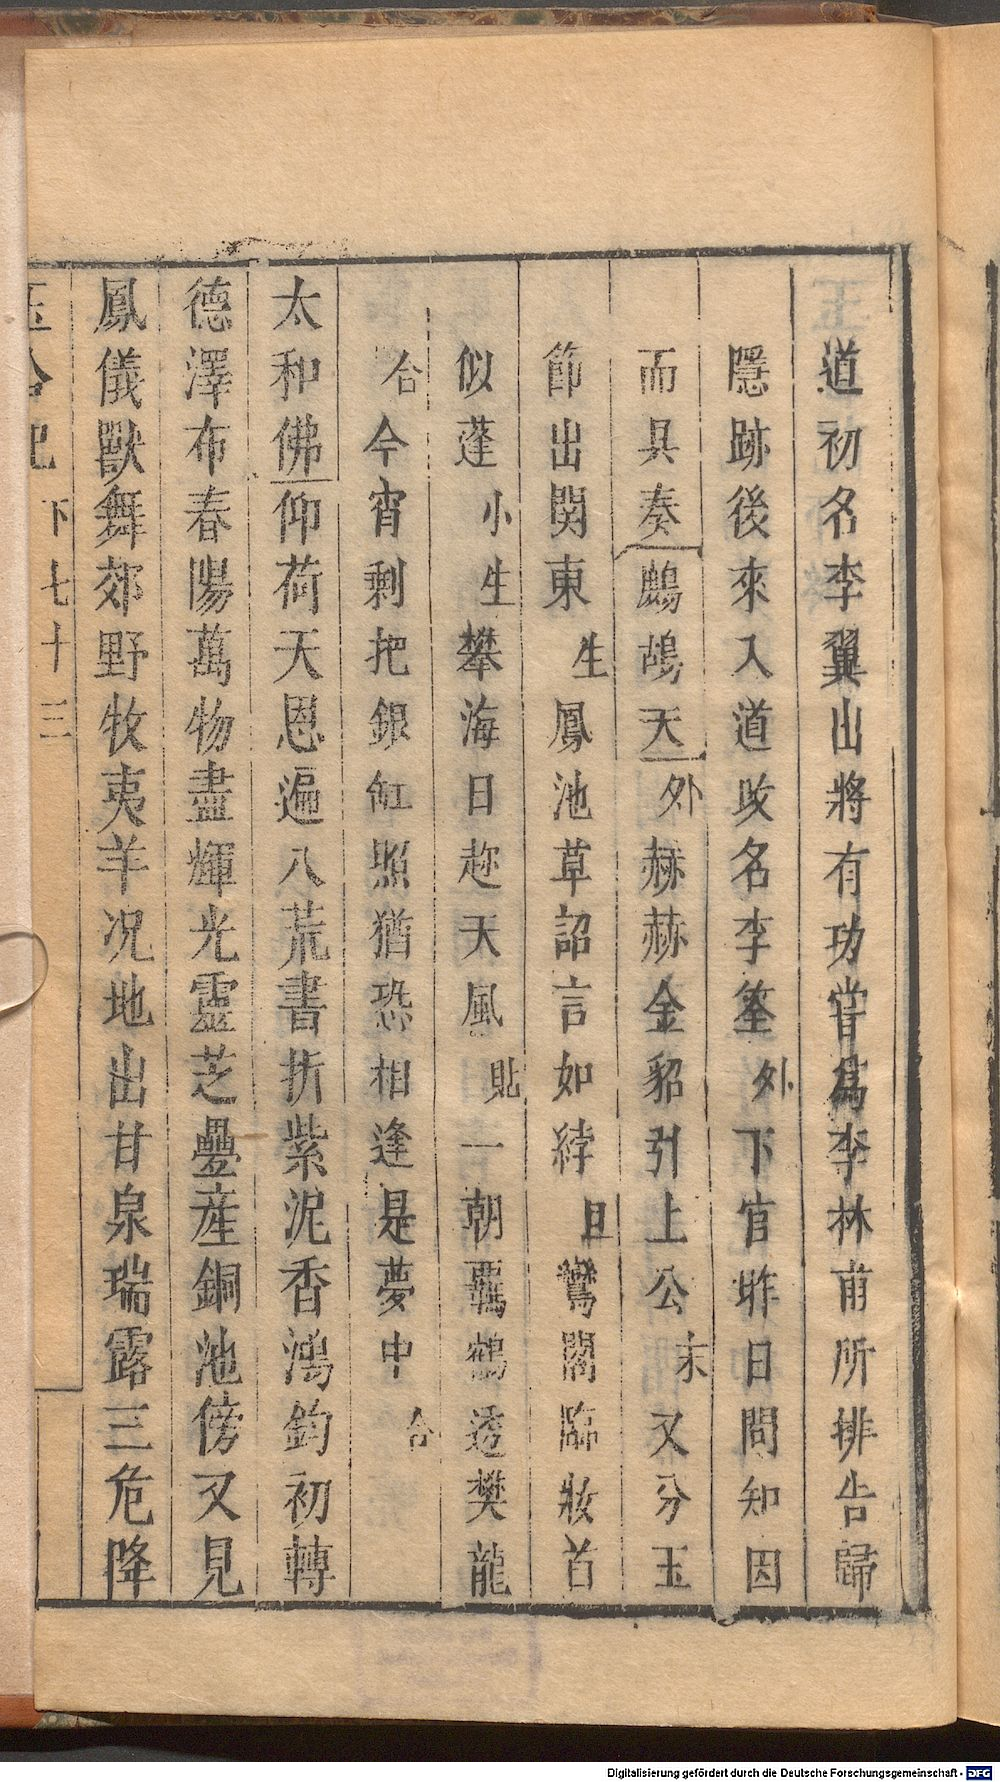 道初名李翼出將有功嘗爲李林甫所排告歸
隱跡後來入道攺名李筌外下官昨日問知因
而具奏鷓鴣天外赫赫金貂引上公末又分玉
節出関東生鳳池草詔言如綍旦鸞閣臨妝首
似蓬小生攀海日趂天風貼一朝羈鶴透樊龍
合今宵剩把銀缸照猶恐相逢是夢中合
太和佛仰荷天恩遍八荒書折紫泥香鴻鈞初轉
德澤布春陽萬物盡輝光靈芝疊産銅池傍又見
鳳儀獸舞郊野牧夷羊况地出甘泉瑞露三危降
玉合記
下七十三
Digitalisierung gefördert durch die Deutsche Forschungsgemeinschaft - DFG